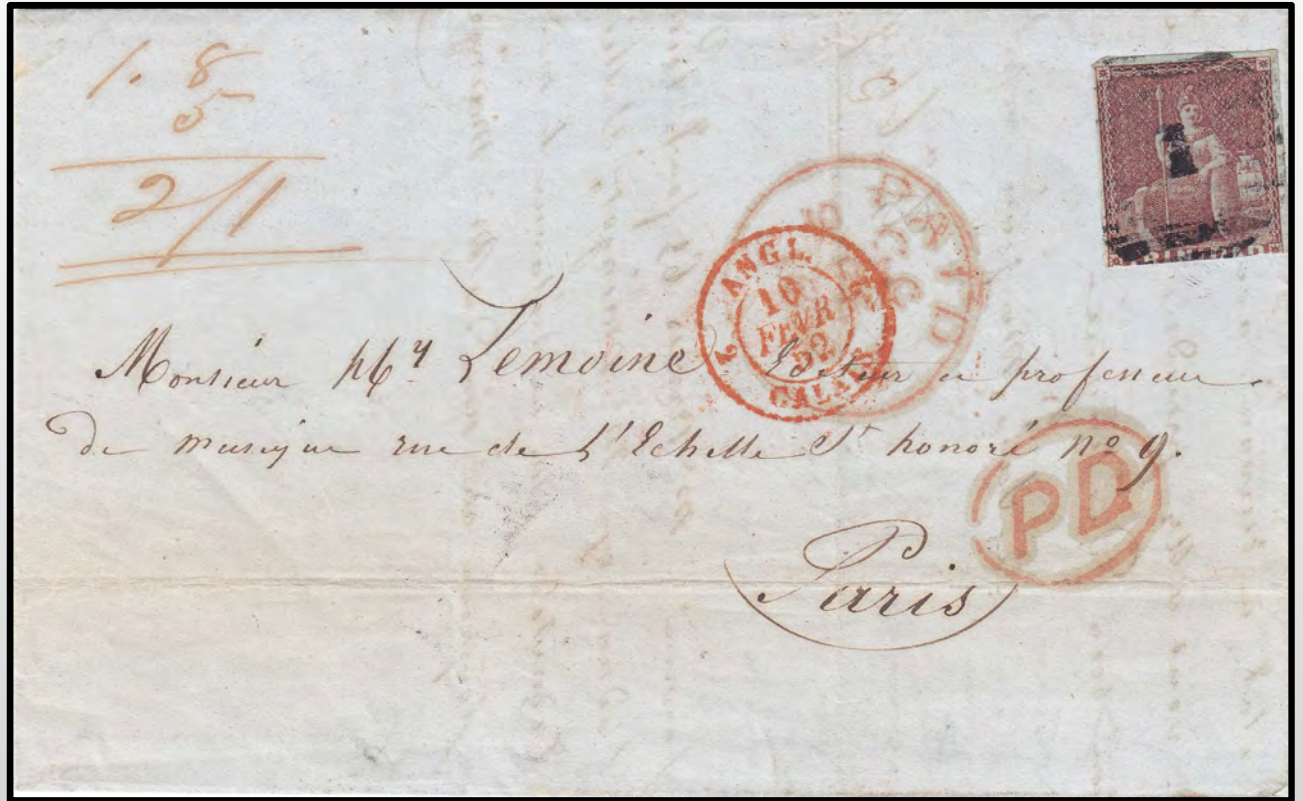 1. 8
5
2/1
PAID
2 ANGL. 2
10
FEVR
52
CALAIS
Monsieur hy Lemoine Editeur et professeur
de musique rue de l'Echelle St honoré no 9.
PD
Paris